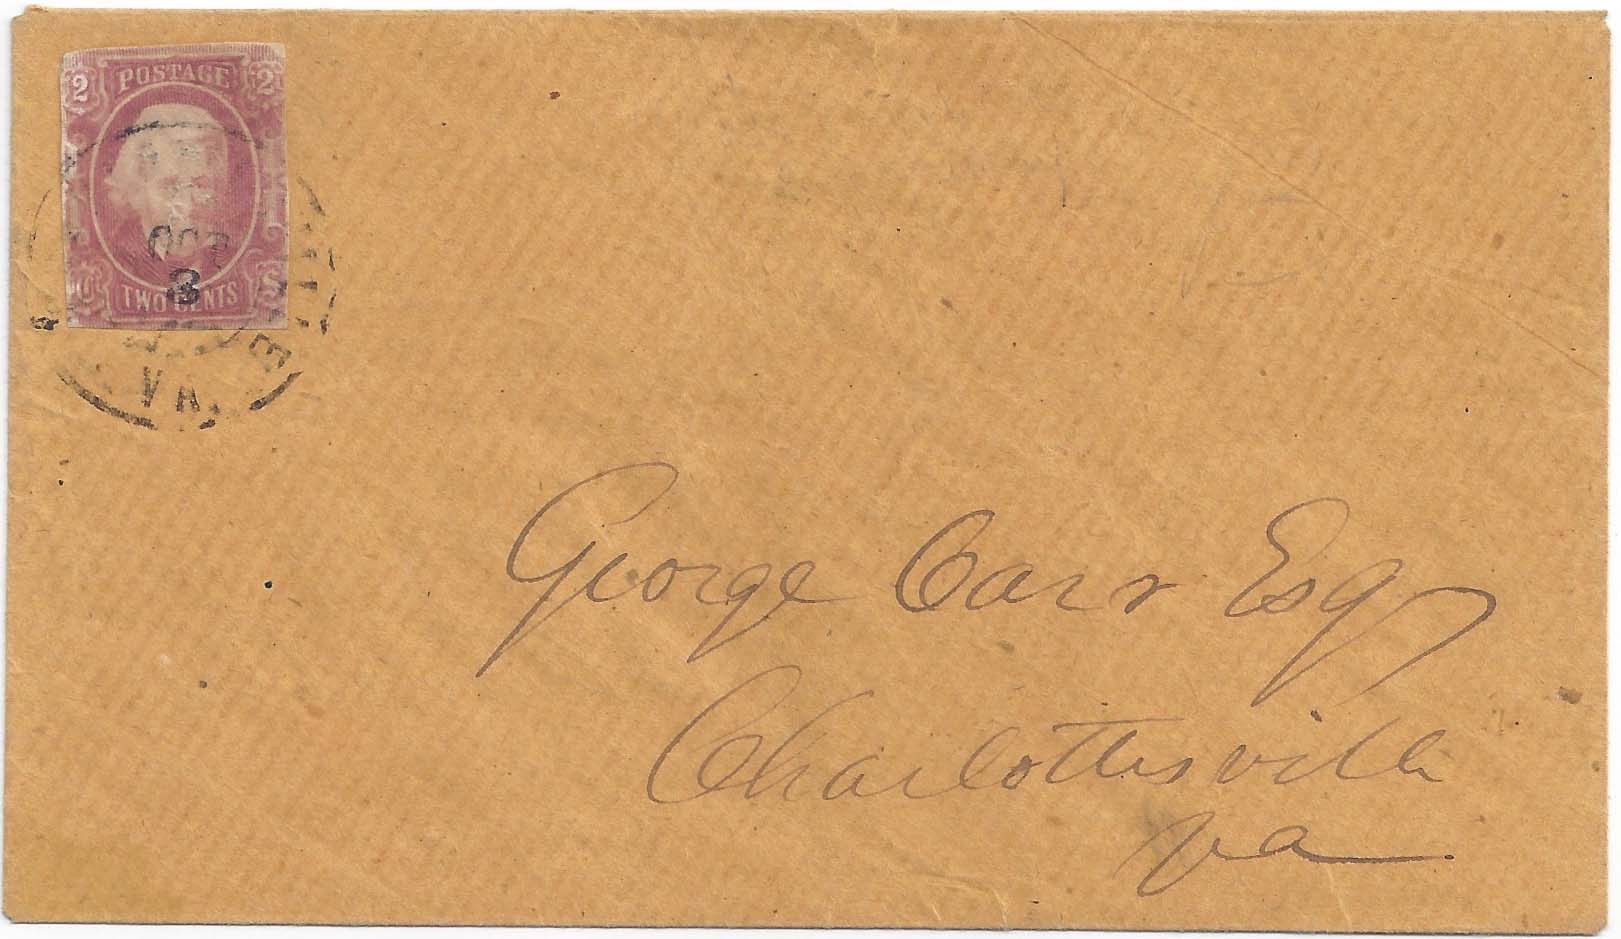 2 POSTAGE 2
OCT
3
TWO CENTS
VA.
George Carr Esq
Charlottesville
Va